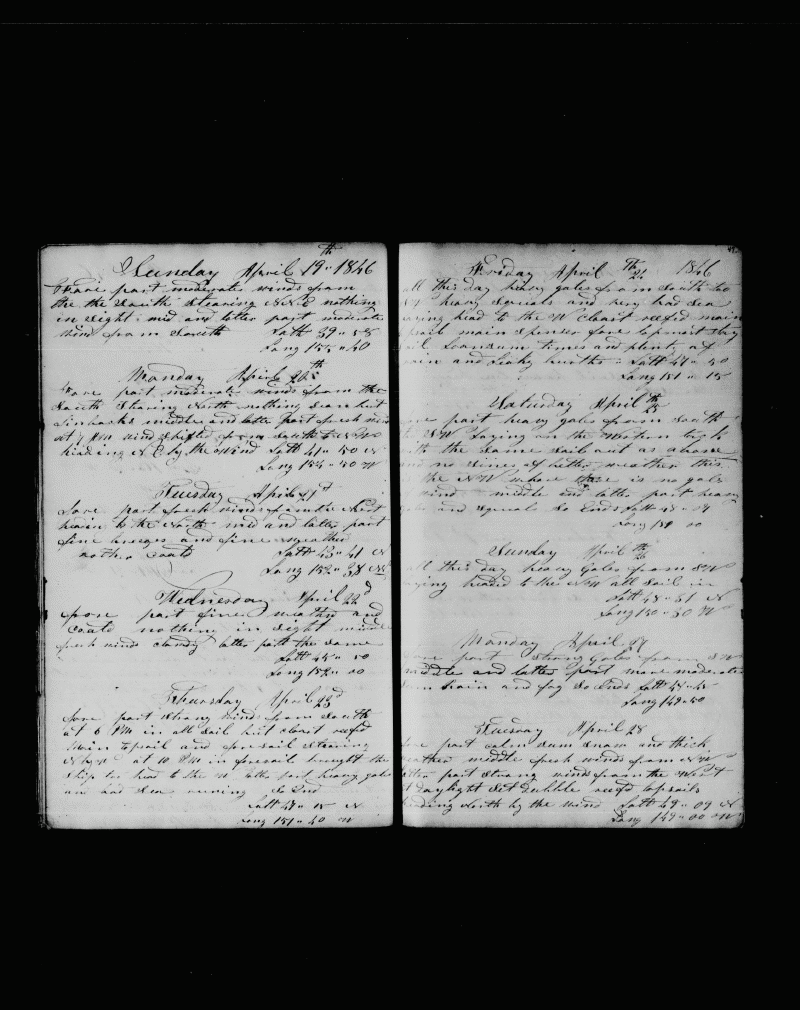 Sunday April 19th 1846
Fore part moderate winds from
the the South Stearing N N E nothing
in Sight mid and latter part moderate
wind from South Latt 39 " 58
Long 155 " 40
Monday April 20th
Fore part moderate winds from the
South Stearing North nothing Seen but
finbacks middle and latter part fresh wind
at 7 PM wind Shifted from South to N W
heading N E by the Wind Latt 41 " 50 N
Long 154 " 50 W
Tuesday April 21st
fore part fresh winds from the West
to the North mid and latter part
fine breezes and fine weather
no thing Latt 43 " 41 N
Long 152 " 38
Wednesday April 22d
fore part fine weather and
nothing in Sight middle
fresh winds cloudy latter part the Same
Latt 45 " 50
Long 152 " 00
Thursday April 23d
fore part Strong winds from South
at 6 PM in all Sail but closet reefd
Main topsail and foresail Stearing
at 10 PM in foresail brought the
Ship too head to the W latter part heavy gales
and Sea runing So End
Latt 48 " 15 N
Long 151 " 40 W
Friday April 24th 1846
all this day heavy gales from South to
heavy Squals and very bad Sea
laying head to the W Closet reefd main
main Spenser fore topmast Stay
times and plenty of
rain and Latt 47 " 50
Long 151 " 15
Saturday April 25th
part heavy gales from South
Laying on the
the Same Sail out as above
no Sines of better weather this
the N W where there is no gale
wind middle and latter part heavy
and Squals So Ends Latt 48 " 19
Long 150 00
Sunday April 26th
all this day heavy Gales from S W
laying headed to the N W all Sail in
Latt 48 " 51 N
Long 150 " 30 W
Monday April 27
fore part Strong Gales from S W
middle and latter part more moderate
rain and fog So Ends Latt 48 " 45
Long 149 " 50
Tuesday April 28
fore part calm Sum Snow and thick
weather middle fresh winds from N W
latter part Strong winds from the West
at daylight Set dubble reefd topsails
heading North by the wind Latt 49 " 09 N
Long 149 " 00 W